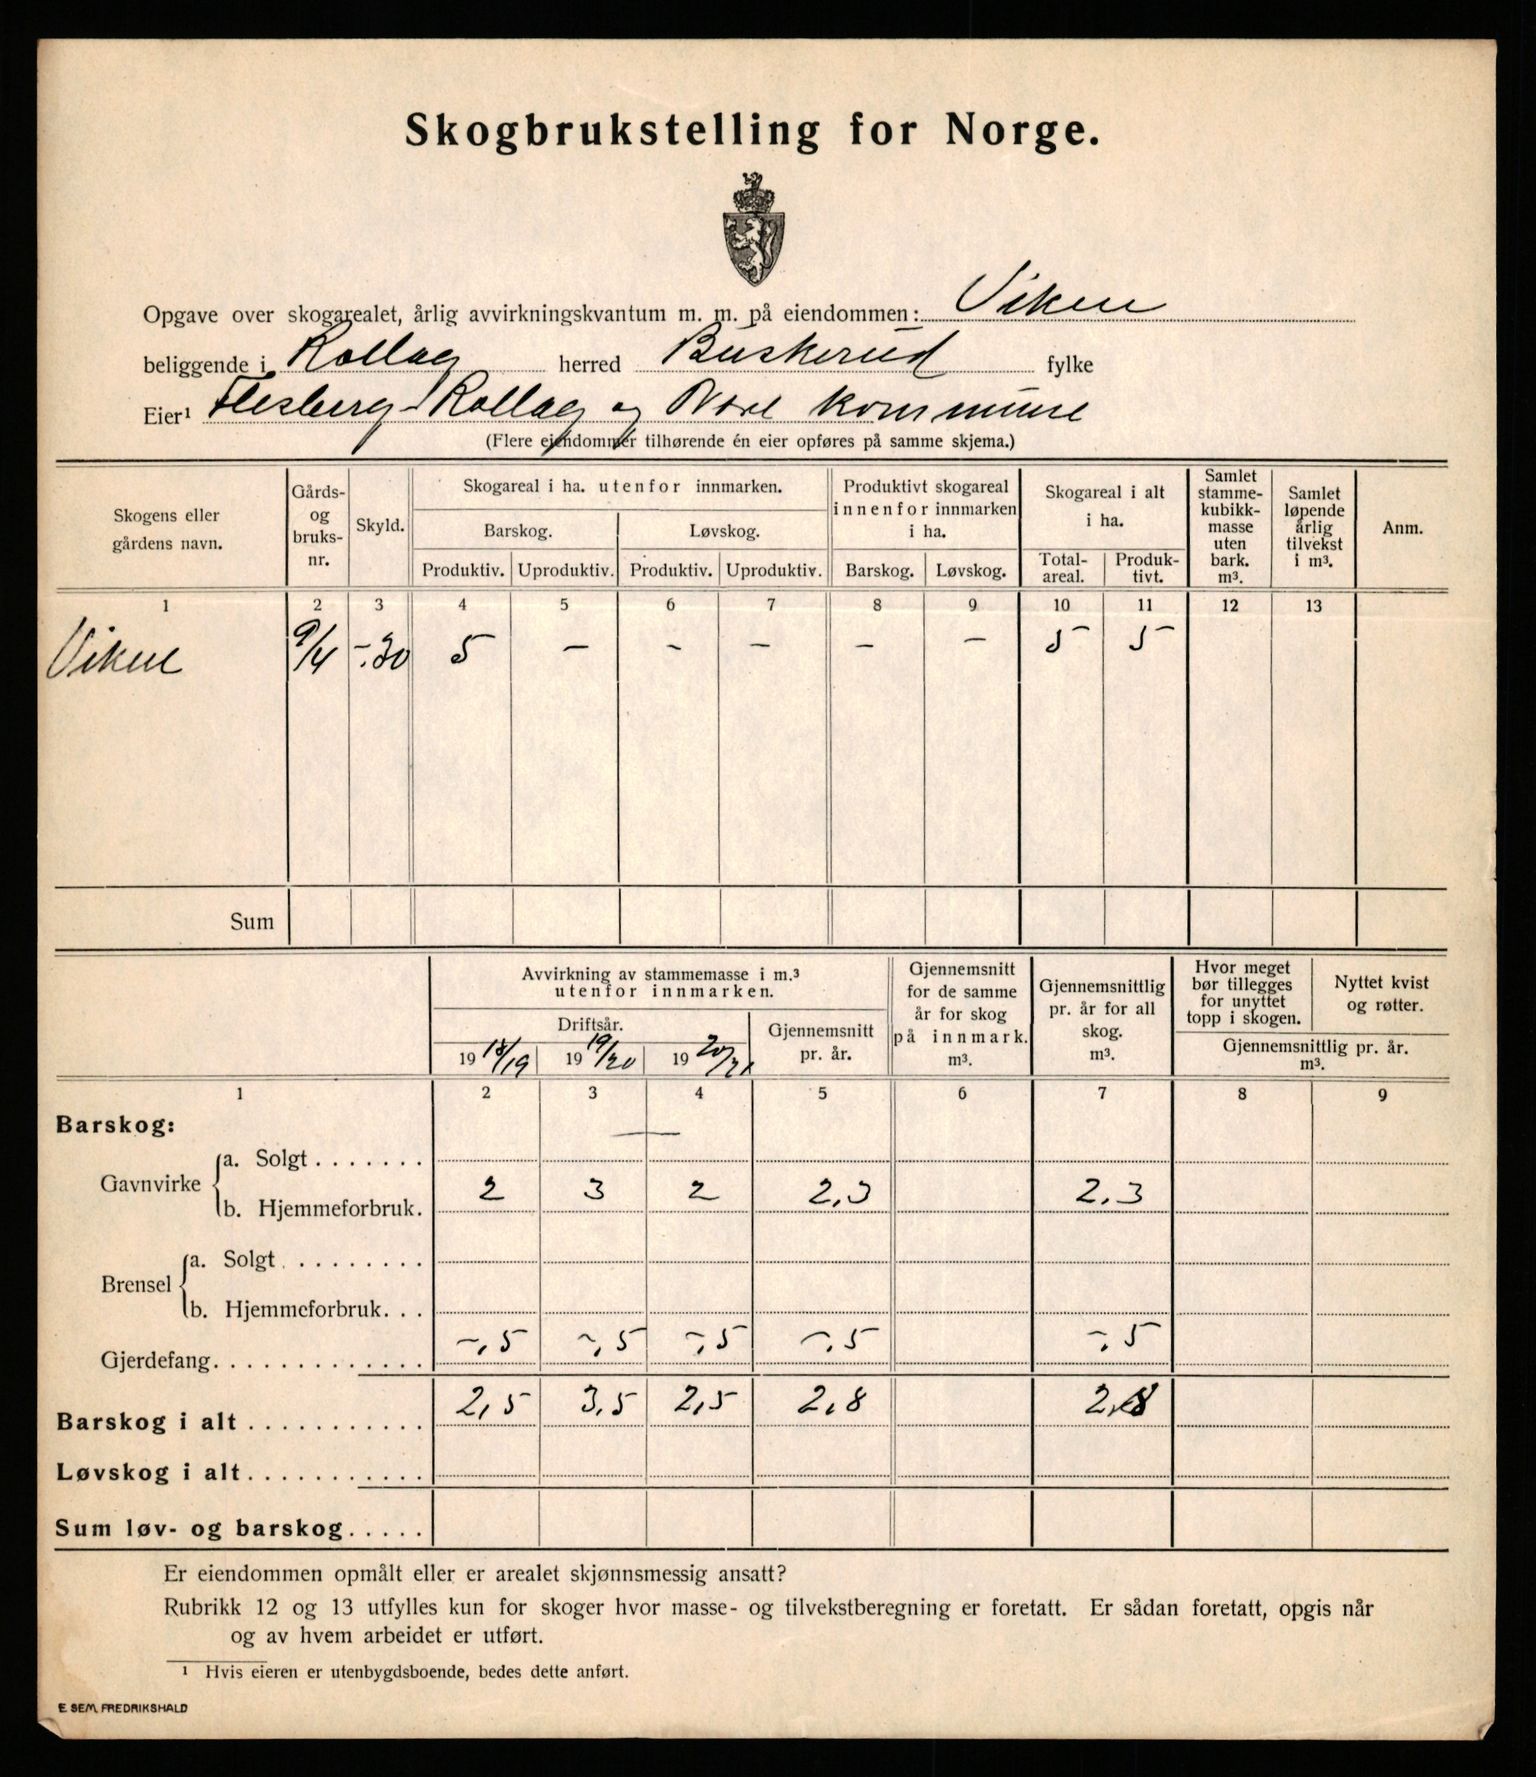 Skogbrukstelling for Norge.
Opgave over skogarealet, årlig avvirkningskvantum m. m. på eiendommen: Viken
beliggende i Rollag herred Buskerud fylke
Eier¹ Flesberg - Rollag og Nore kommune
(Flere eiendommer tilhørende én eier opføres på samme skjema.)
Skogens eller gårdens navn. | Gårds- og bruks- nr. | Skyld. | Skogareal i ha. utenfor innmarken. | Produktivt skogareal innenfor innmarken i ha. | Skogareal i alt i ha. | Samlet stamme- kubikk- masse uten bark. m³. | Samlet løpende årlig tilvekst i m³. | Anm.
Barskog. | Løvskog.
Produktiv. | Uproduktiv. | Produktiv. | Uproduktiv. | Barskog. | Løvskog. | Total- areal. | Produk- tivt.
1 2 3 4 5 6 7 8 9 10 11 12 13
Viken 9/4 -.30 5 – – – – – 5 5
Sum
Avvirkning av stammemasse i m.³ utenfor innmarken. | Gjennemsnitt for de samme år for skog på innmark. m³. | Gjennemsnittlig pr. år for all skog. m³. | Hvor meget bør tillegges for unyttet topp i skogen. | Nyttet kvist og røtter.
Driftsår. | Gjennemsnitt pr. år. | Gjennemsnittlig pr. år. m³.
19 18/19 | 19 19/20 | 19 20/21
1 2 3 4 5 6 7 8 9
Barskog:
Gavnvirke a. Solgt . . . . . . . —
b. Hjemmeforbruk. 2 3 2 2,3 2.3
Brensel a. Solgt . . . . . . . . .
b. Hjemmeforbruk. . .
Gjerdefang. . . . . . . . . . . . . -,5 -,5 -,5 -,5 -.5
Barskog i alt . . . . . . . . . . . 2,5 3,5 2,5 2,8 2,8
Løvskog i alt . . . . . . . . . . .
Sum løv- og barskog . . . . .
Er eiendommen opmålt eller er arealet skjønnsmessig ansatt?
Rubrikk 12 og 13 utfylles kun for skoger hvor masse- og tilvekstberegning er foretatt. Er sådan foretatt, opgis når
og av hvem arbeidet er utført.
¹ Hvis eieren er utenbygdsboende, bedes dette anført.
E SEM, FREDRIKSHALD